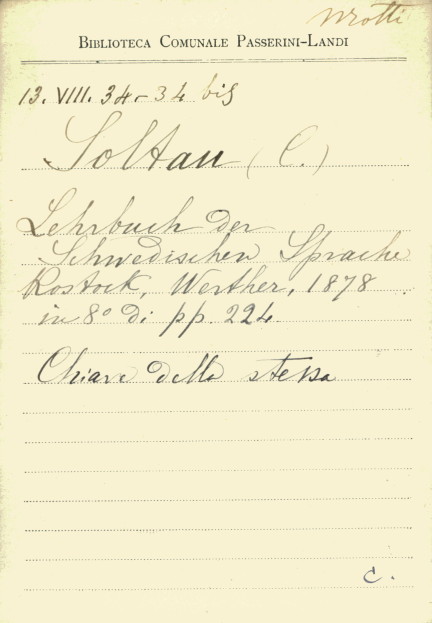 BIBLIOTECA COMUNALE PASSERINI-LANDI
13. VIII. 34-34 bis
Soltau (C.)
Lehrbuch der
Schwedischen Sprache
Rostock, Werther, 1878
in 8º di pp. 224
Chiave della stessa
C.